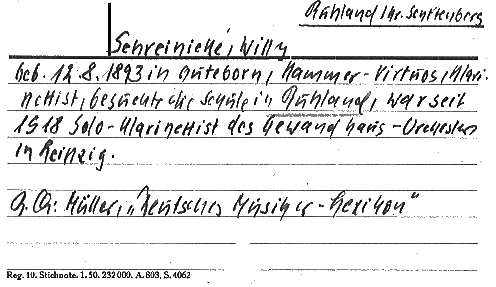 Ruhland Kr. Senftenberg
Schreinicke, Willy
Geb. 12.8.1893 in Guteborn, Kammer-Virtuos, Klari-
nettist, besuchte die Schule in Ruhland, war seit
1918 Solo-Klarinettist des Gewandhaus-Orchesters
in Leipzig.
Müller, „Deutsches Musiker-Lexikon"
Reg. 10. Stichnote. 1. 50. 232000. A. 803, S. 4062